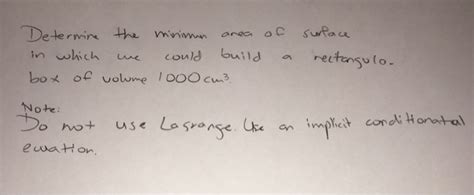 Determine the minimun area of surface
in which we could build a rectangulo.
box of volume 1000cm³.
Note:
Do not use Lagrange. Use an implicit conditionatal
ewation.